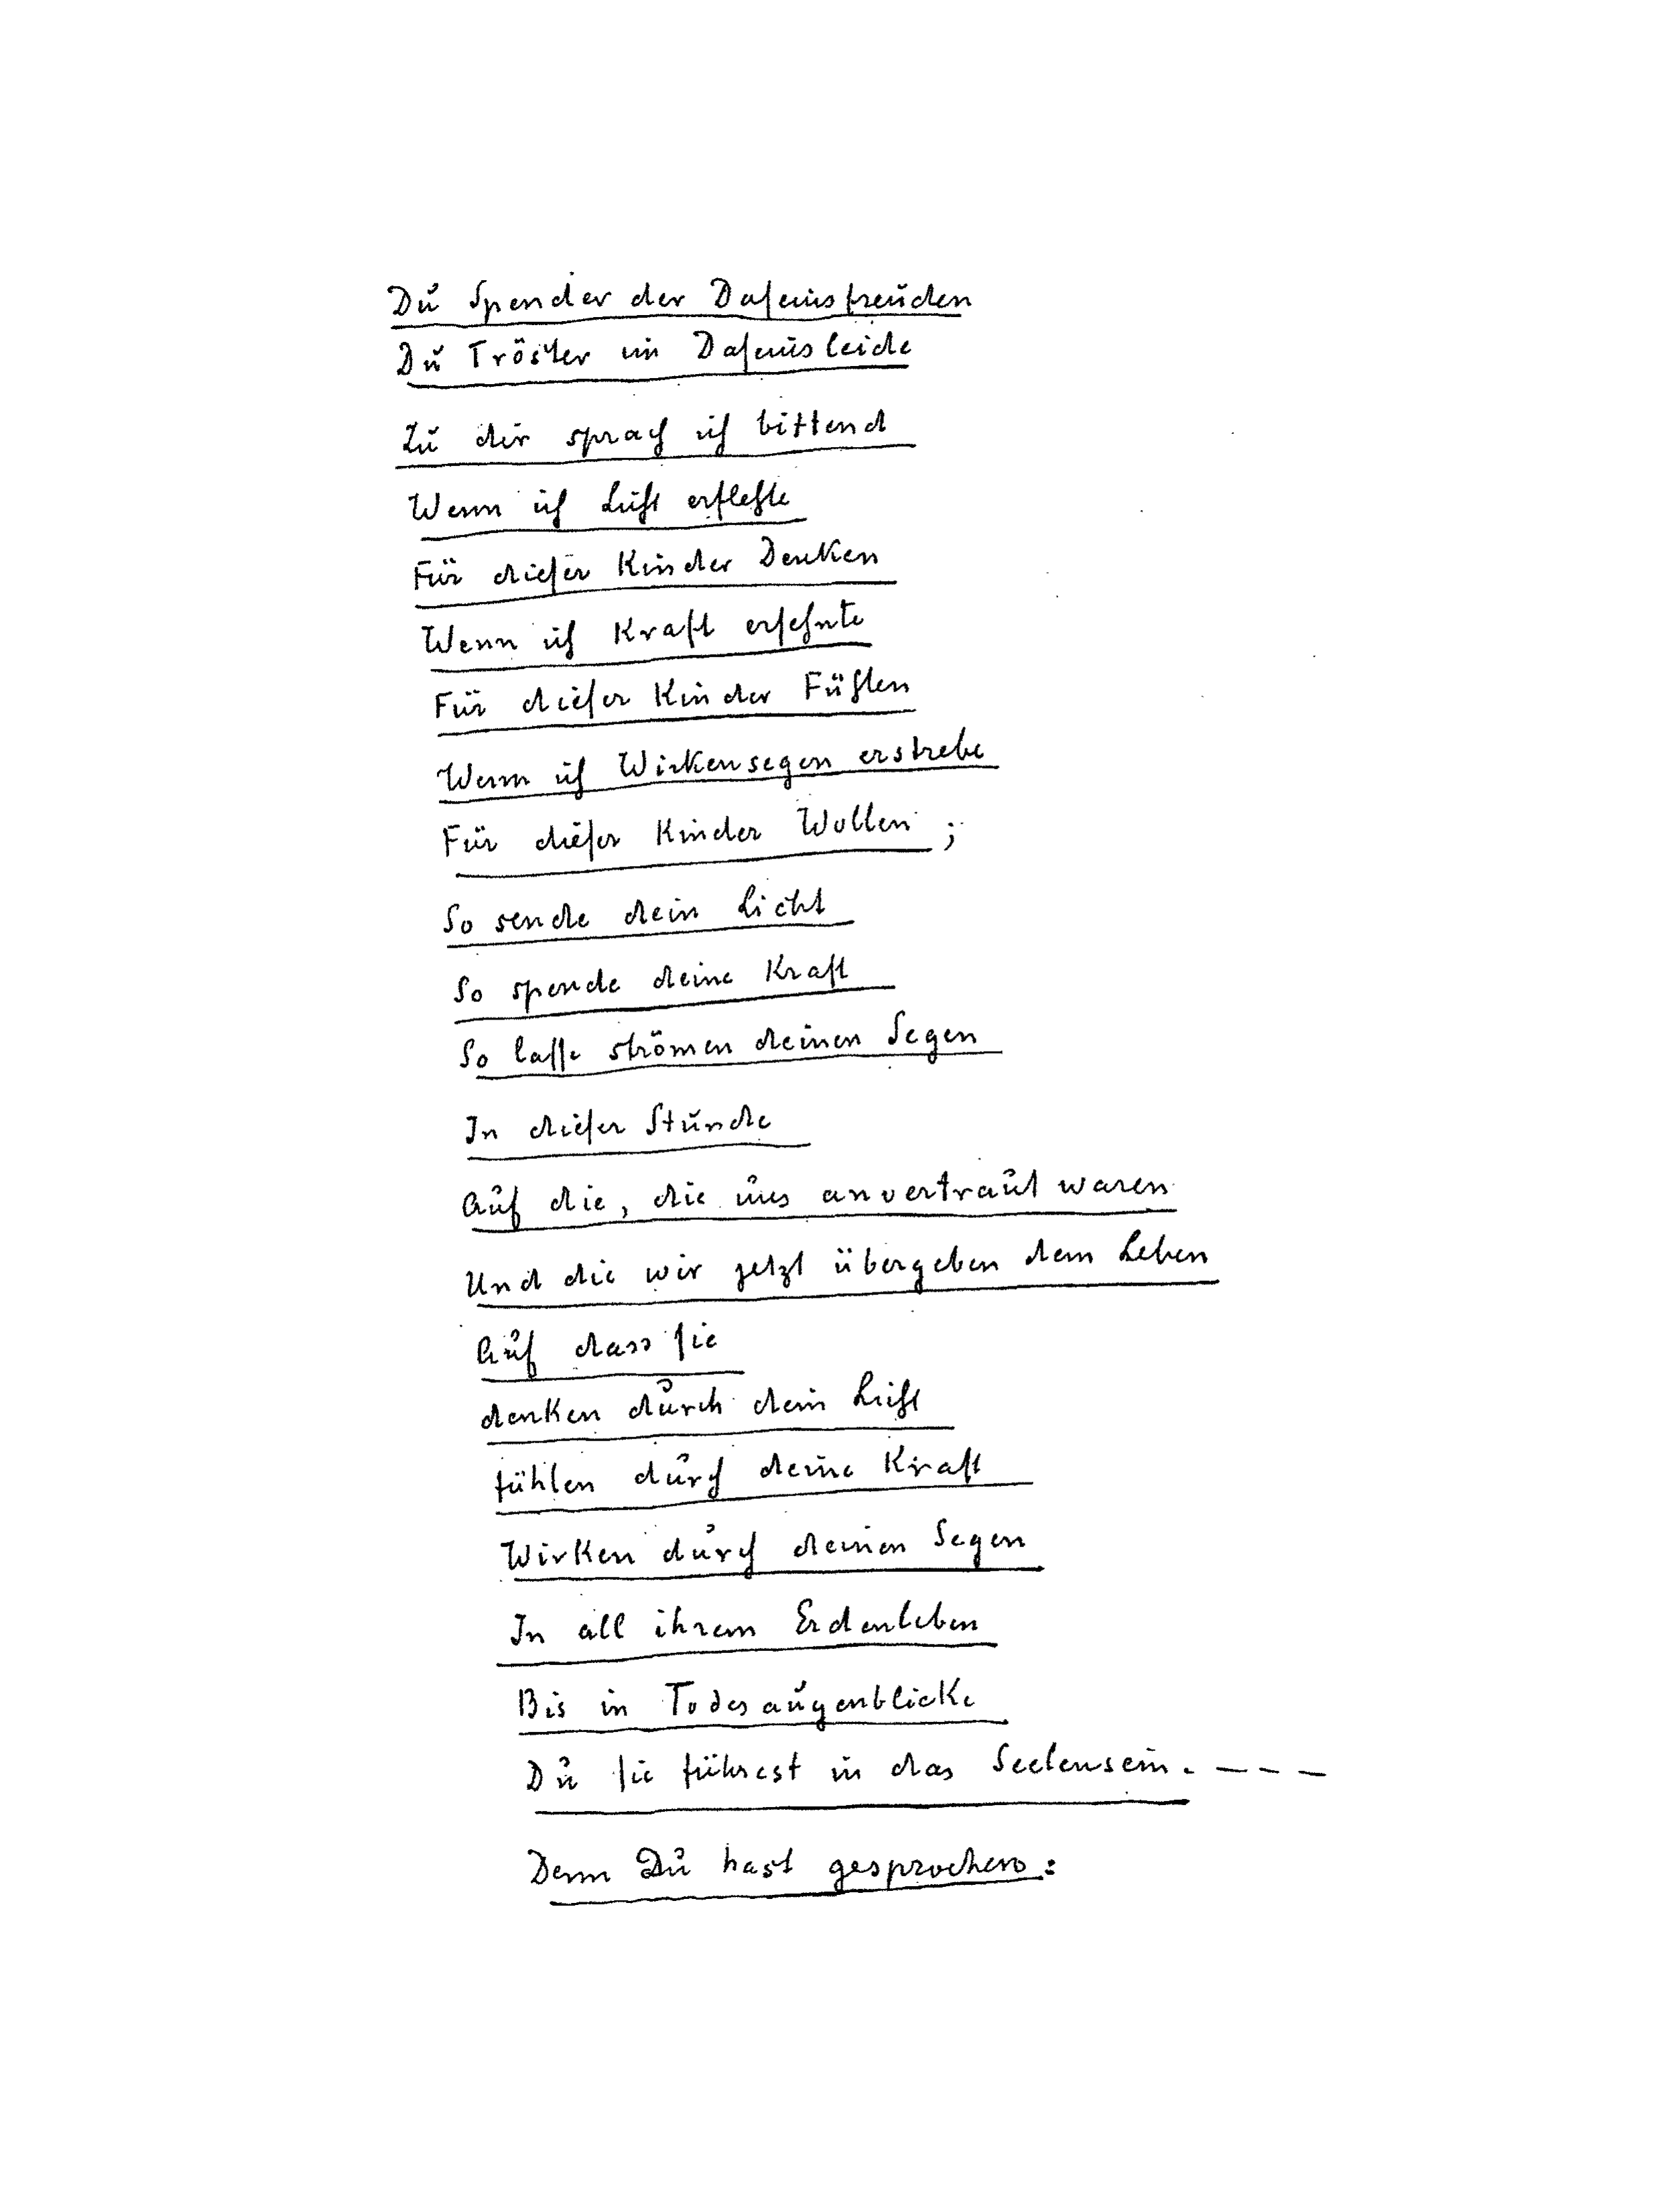 Du Spender der Daseinsfreuden
Du Tröster im Daseinsleide
Zu dir sprach ich bittend
Wenn ich Licht erflehte
Für dieser Kinder Denken
Wenn ich Kraft ersehnte
Für dieser Kinder Fühlen
Wenn ich Wirkensegen erstrebe
Für dieser Kinder Wollen ;
So sende dein Licht
So spende deine Kraft
So lasse strömen deinen Segen
In dieser Stunde
Auf die, die uns anvertraut waren
Und die wir jetzt übergeben dem Leben
Auf dass sie
denken durch dein Licht
fühlen durch deine Kraft
Wirken durch deinen Segen
In all ihrem Erdenleben
Bis in Todesaugenblicke
Du sie führest in das Seelensein. – – –
Denn Du hast gesprochen: